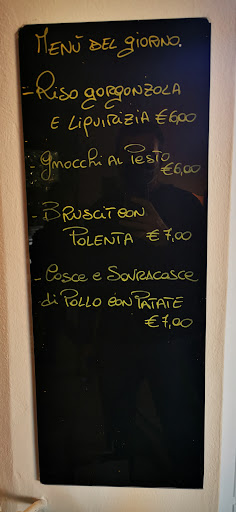 MENÙ DEL GIORNO.
- RISO GORGONZOLA
E LIQUIRIZIA €6,00
- GNOCCHI AL PESTO
€6,00
- BRUSCIT CON
POLENTA €7,00
- COSCE E SOVRACOSCE
di POLLO CON PATATE
€7,00